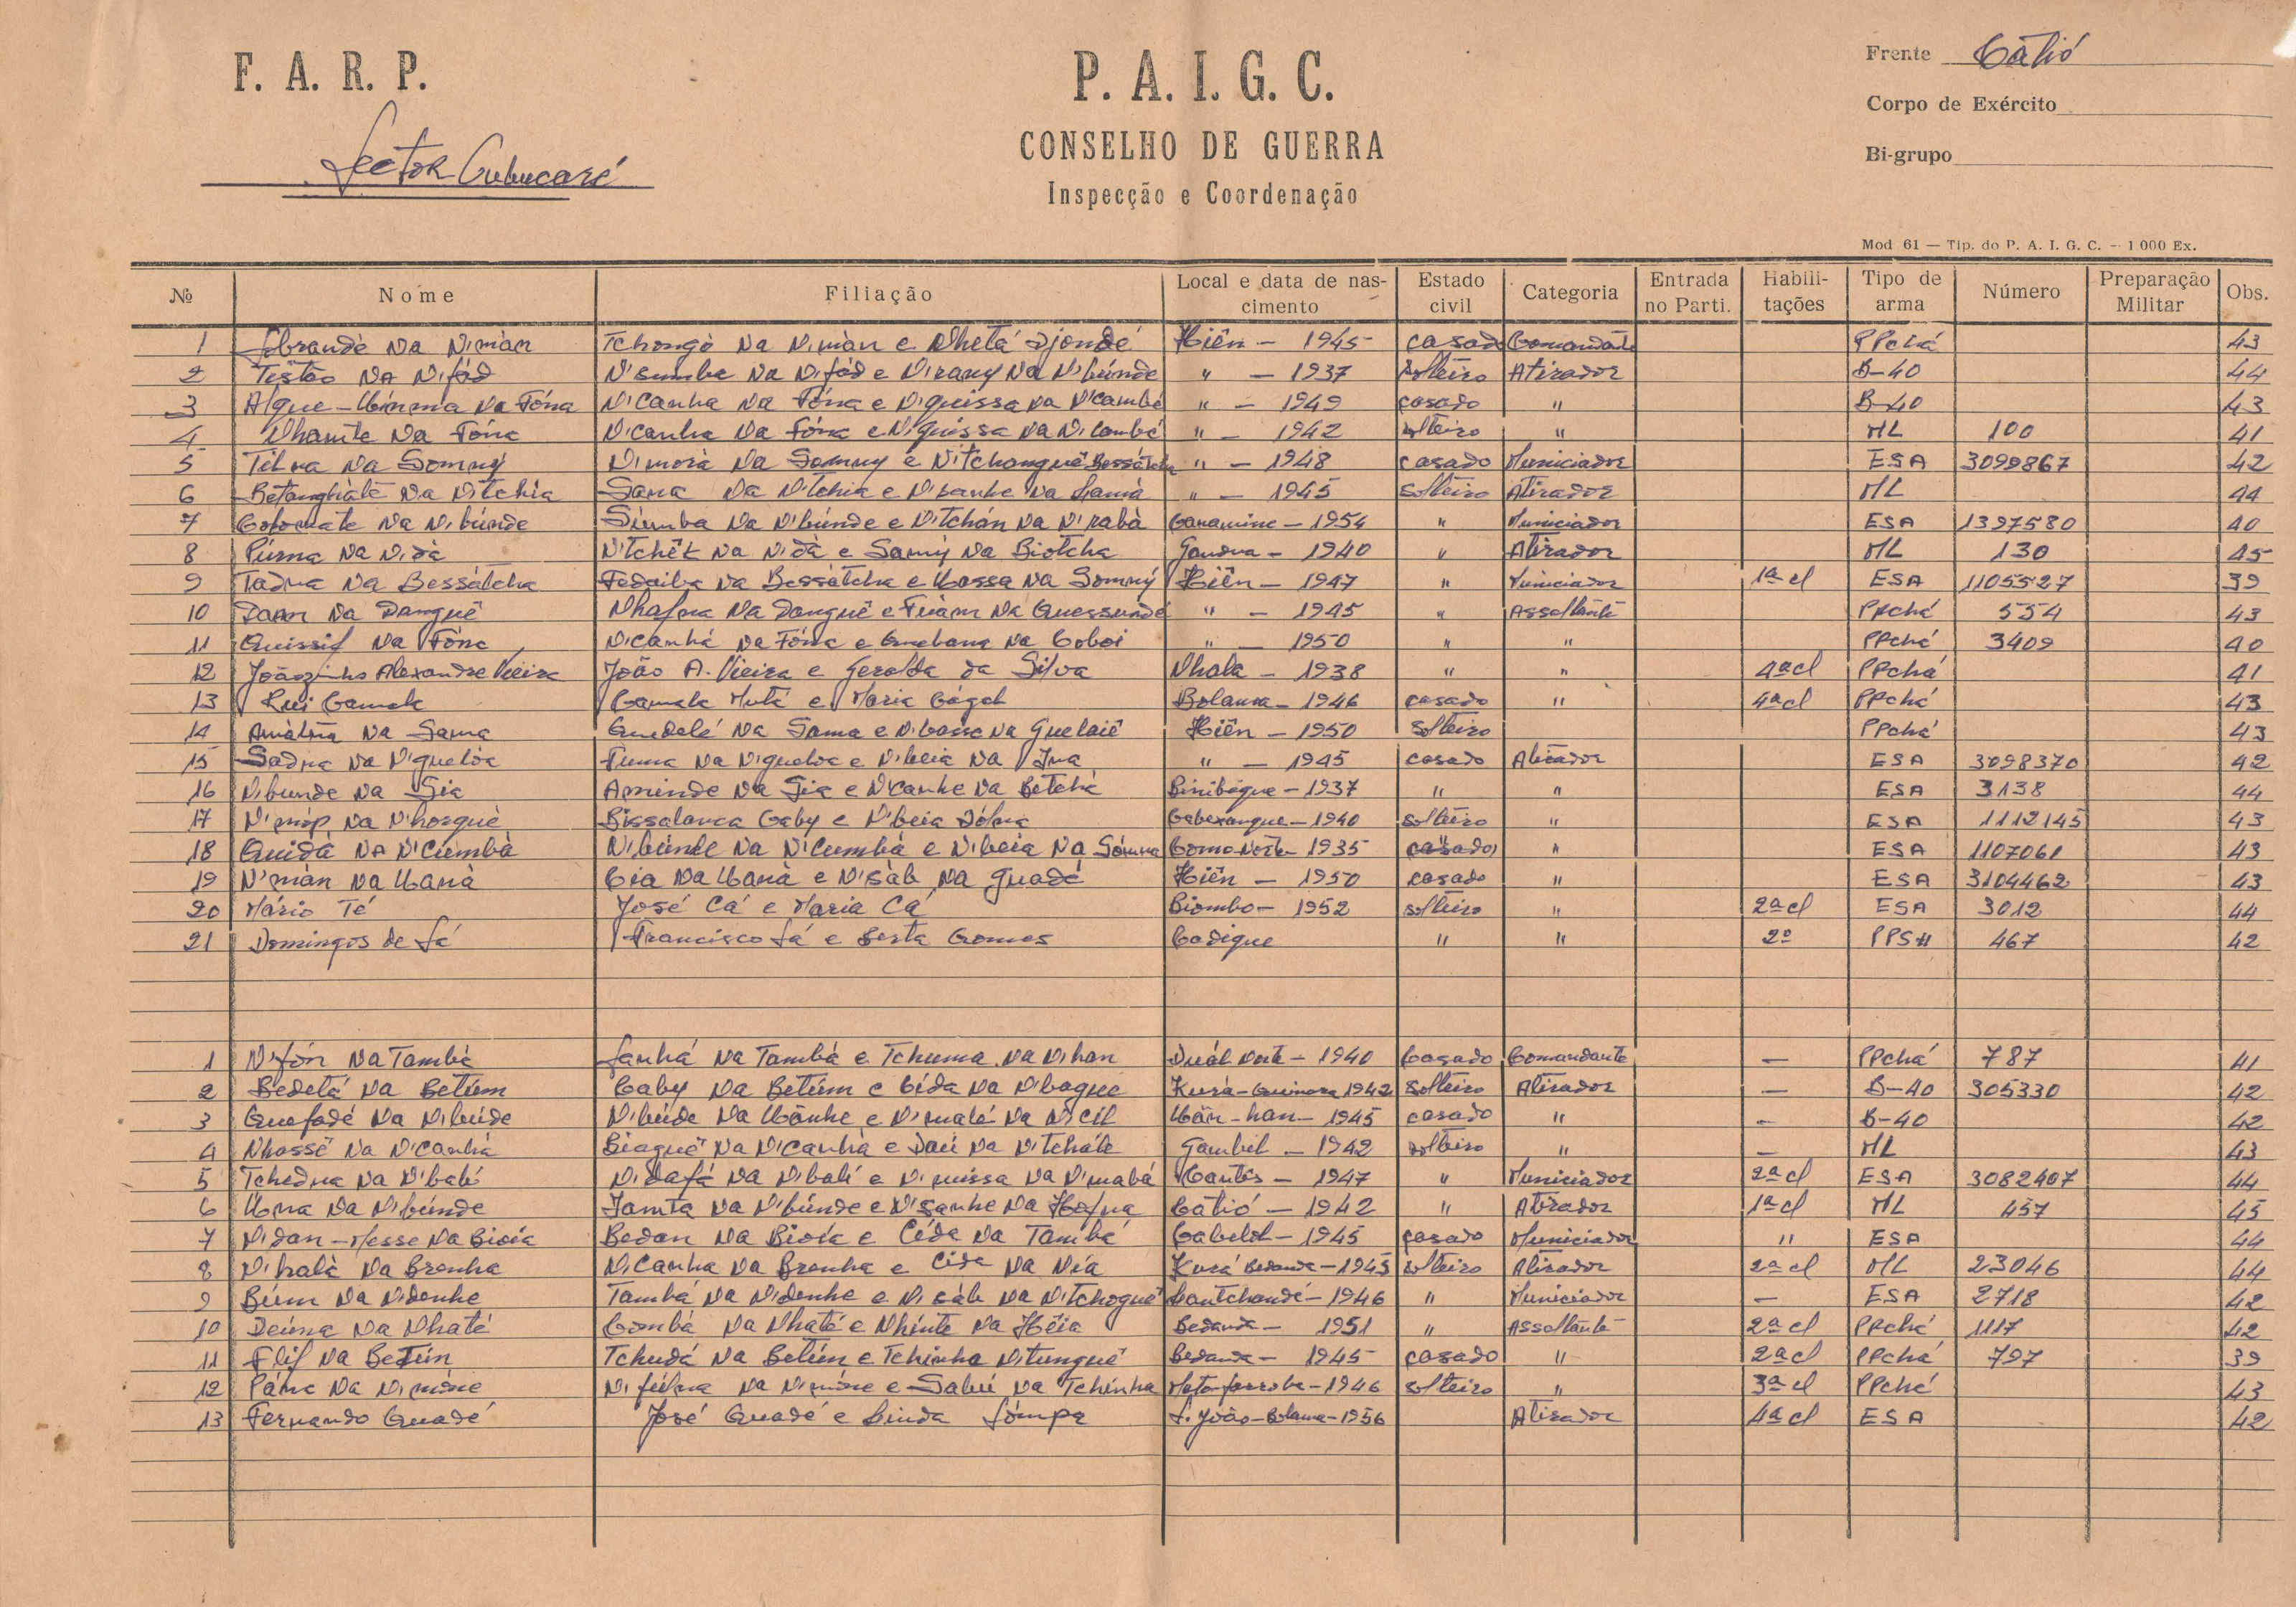 F. A. R. P.
P. A. I. G. C.
Frente Catió
CONSELHO DE GUERRA
Corpo de Exército
Sector Cubucaré
Bi-grupo
Inspecção e Coordenação
Mod 61 — Tip. do P. A. I. G. C. — 1.000 Ex.
Nº Nome Filiação Local e data de nascimento Estado civil Categoria Entrada no Parti. Habilitações Tipo de arma Número Preparação Militar Obs.
1 Sobrandè Na N'màn Tchongò Na N'màn e Nhetá Djondé Hiên - 1945 casado Comandante PPchá 43
2 Testão Na N'fád N'sumba Na N'fád e N'rany Na N'búnde " - 1937 solteiro Atirador B-40 44
3 Algue-Uánma Na Fóna N'Canha Na Fóna e N'quissa Na N'cambé " - 1949 casado " B-40 43
4 Nhamte Na Fóna N'canha Na Fóna e N'quissa Na N'cambé " - 1942 solteiro " ML 100 41
5 Tilna Na Sommy N'morà Na Sommy e N'tchonguê Bessátcha " - 1948 casado Municiador ESA 3099867 42
6 Betanghàtê Na N'tchia Sana Na N'tchia e N'sanhe Na Samà " - 1945 solteiro Atirador ML 44
7 Cobornate Na N'búnde Siúmba Na N'búnde e N'tchán Na N'rabà Canamine - 1954 " Municiador ESA 1397580 40
8 Púrna Na N'dà N'tchêk Na N'dà e Samy Na Biotcha Gandua - 1940 " Atirador ML 130 45
9 Tadna Na Bessátcha Fedailna Na Bessátcha e Uossa Na Sommy Hiên - 1947 " Municiador 1ª cl ESA 1105527 39
10 Daan Na Danguê Nhafna Na Danguê e Fuàm Na Quessundé " - 1945 " Assaltante PPchá 554 43
11 Quissif Na Fóna N'canhá Na Fóna e Quebana Na Coboi " - 1950 " " PPchá 3409 40
12 Joãozinho Alexandre Vieira João A. Vieira e Geralda da Silva Nhala - 1938 " " 4ª cl PPchá 41
13 Rui Camala Camala Mutá e Maria Gágel Bolama - 1946 casado " 4ª cl PPchá 43
14 Amàtna Na Sama Quedelé Na Sama e N'basse Na Guelaiê Hiên - 1950 solteiro PPchá 43
15 Sadna Na N'gueloa Fuma Na N'gueloa e N'beia Na Ina " - 1945 casado Atirador ESA 3098370 42
16 N'bunde Na Sia Aminde Na Sia e N'canhe Na Betchá Binibaque - 1937 " " ESA 3138 44
17 N'mop Na N'horquè Bissalanca Caby e N'beia Dólna Cabexangue - 1940 solteiro " ESA 1112145 43
18 Quidà Na N'Cumbà N'búnde Na N'Cumbà e N'beia Na Sómna Como-Norte 1935 casado " ESA 1107061 43
19 N'màn Na Uanà Cia Na Uanà e N'sàb Na Guadé Hiên - 1950 casado " ESA 3104462 43
20 Mário Té José Cá e Maria Cá Biombo - 1952 solteiro " 2ª cl ESA 3012 44
21 Domingos de Sá Francisco Sá e Berta Gomes Cadique " " 2º PPSH 467 42
1 N'fón Na Tambà Sanhá Na Tambà e Tchuma Na N'han 1940 casado Comandante — PPchá 787 41
2 Bedetá Na Betúm Caby Na Betúm e Cída Na N'bague Kurà-Quinara 1942 solteiro Atirador — B-40 305330 42
3 Quefadé Na N'búde N'búde Na Uãnhe e N'malé Na N'cil Uãn-han - 1945 casado " — B-40 42
4 Nhassê Na N'Canhà Biaguê Na N'Canhà e Daú Na N'tchále Gambil - 1942 solteiro " — ML 43
5 Tchedna Na N'balé N'dafá Na N'balé e N'quissa Na N'mabá Cantês - 1947 " Municiador 2ª cl ESA 3082407 44
6 Uma Na N'búnde Jamta Na N'búnde e N'sanhe Na Hafna Catió - 1942 " Atirador 1ª cl ML 457 45
7 N'dan-Messe Na Bioia Bedan Na Bioía e Cída Na Tambá Cabelol - 1945 casado Municiador " ESA 44
8 N'halà Na Brenha N'Canha Na Brenha e Cída Na Nía Kurá Bedanda - 1945 solteiro Atirador 2ª cl ML 23046 44
9 Búm Na N'denhe Tambá Na N'denhe e N'sàb Na N'tchoguê Cautchandé - 1946 " Municiador — ESA 2718 42
10 Deúna Na Nhaté Combà Na Nhaté e Nhínte Na Hêia Bedanda - 1951 " Assaltante 2ª cl PPchá 1117 42
11 Flif Na Betún Tchudá Na Betún e Tchinha N'tunguê Bedanda - 1945 casado " 2ª cl PPchá 797 39
12 Pánc Na N'móne N'fúlna Na N'móne e Salú Na Tchinha Mata-farroba - 1946 solteiro " 3ª cl PPchá 43
13 Fernando Quadé José Quadé e Linda Sómpa S. João-Bolama - 1956 Atirador 4ª cl ESA 42